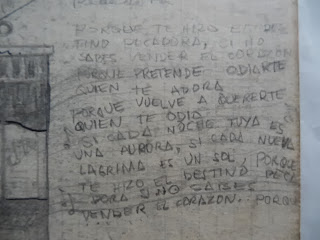 PORQUE TE HIZO EL DES
TINO PECADORA, SI NO
SABES VENDER EL CORAZON
PORQUE PRETENDE ODIARTE
QUIEN TE ADORA
PORQUE VUELVE A QUERERTE
QUIEN TE ODIA
SI CADA NOCHE TUYA ES
UNA AURORA, SI CADA NUEVA
LAGRIMA ES UN SOL, PORQUE
TE HIZO EL DESTINO PECA
DORA SI NO SABES
VENDER EL CORAZON. PORQUE